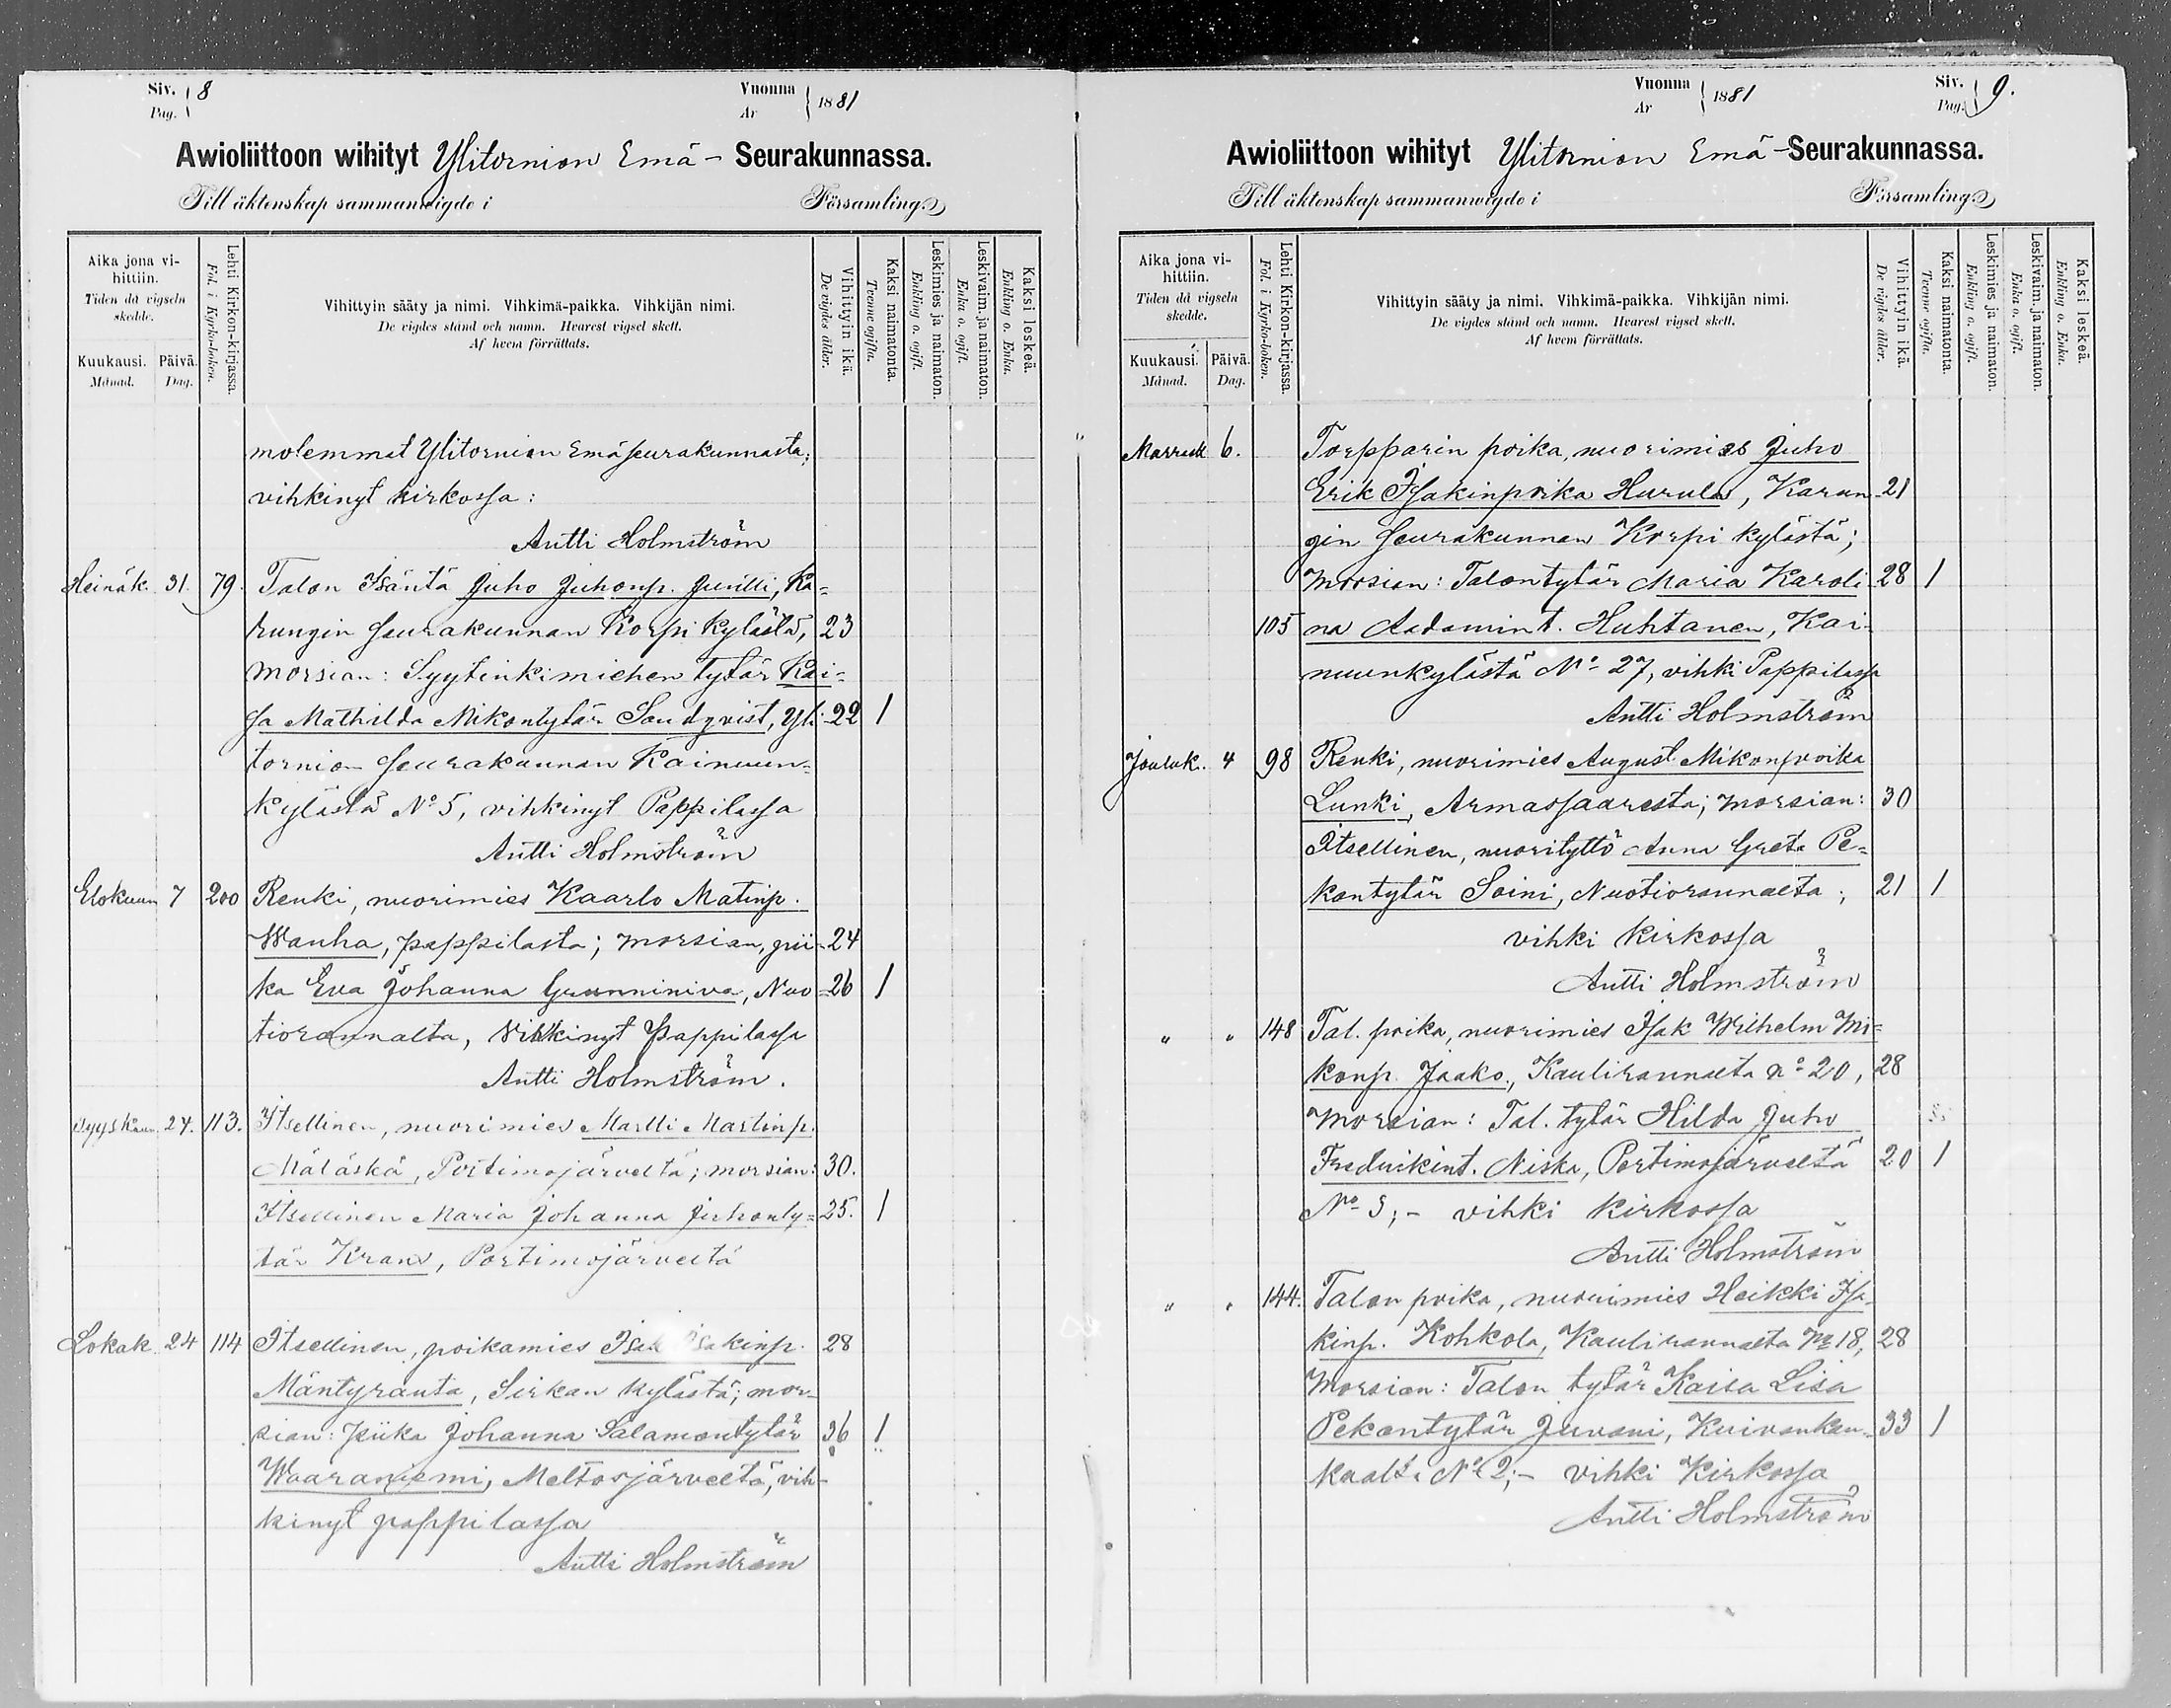 Siv. 8
Pag.
Vuonna 1881
År
Awioliittoon wihityt Ylitornion Emä- Seurakunnassa.
Till äktenskap sammanwigde i Församling.
Aika jona vi-
hittiin.
Tiden då vigseln
skedde.
Kuukausi. Päivä.
Månad. Dag.
Lehti Kirkon-kirjassa.
Fol. i Kyrko-boken.
Vihittyin sääty ja nimi. Vihkimä-paikka. Vihkijän nimi.
De vigdes stånd och namn. Hvarest vigsel skett.
Af hvem förrättats.
Vihittyin ikä.
De vigdes ålder.
Kaksi naimatonta.
Tvenne ogifta.
Leskimies ja naimaton.
Enkling o. ogift.
Leskivaim. ja naimaton.
Enka o. ogift.
Kaksi leskeä.
Enkling o. Enka.
molemmat Ylitornion Emäseurakunnasta;
vihkinyt kirkossa:
Antti Holmström
Heinäk. 31. 79. Talon Isäntä Juho Juhonp. Juntti, Ka=
rungin seurakunnan Korpi kylästä, 23
morsian: Syytinkimiehen tytär Kai=
sa Mathilda Mikontytär Sandqvist, Yli- 22 1
tornion seurakunnan Kainuun=
kylästä No 5, vihkinyt Pappilassa
Antti Holmström
Elokuun 7 200 Renki, nuorimies Kaarlo Matinp.
Wanha, pappilasta; morsian, pii- 24
ka Eva Johanna Gunniniva, Nuo= 26 1
tiorannalta, Vihkinyt Pappilassa
Antti Holmström.
Syyskuun 24. 113. Itsellinen, nuorimies Martti Martinp.
Mäläskä, Portimojärveltä; morsian: 30.
Itsellinen Maria Johanna Juhonty= 25. 1
tär Krans, Portimojärveltä
Lokak. 24 114 Itsellinen, poikamies Isak Isakinp. 28
Mäntyranta, Sirkan kylästä; mor-
sian: Piika Johanna Salamontytär 36 1
Waaraniemi, Meltosjärveltä, vih-
kinyt pappilassa
Antti Holmström
Vuonna 1881
År
Siv. 9.
Pag.
Awioliittoon wihityt Ylitornion Emä-Seurakunnassa.
Till äktenskap sammanwigde i Församling.
Aika jona vi-
hittiin.
Tiden då vigseln
skedde.
Kuukausi. Päivä.
Månad. Dag.
Lehti Kirkon-kirjassa.
Fol. i Kyrko-boken.
Vihittyin sääty ja nimi. Vihkimä-paikka. Vihkijän nimi.
De vigdes stånd och namn. Hvarest vigsel skett.
Af hvem förrättats.
Vihittyin ikä.
De vigdes ålder.
Kaksi naimatonta.
Tvenne ogifta.
Leskimies ja naimaton.
Enkling o. ogift.
Leskivaim. ja naimaton.
Enka o. ogift.
Kaksi leskeä.
Enkling o. Enka.
Marrask 6. Torpparin poika, nuorimies Juho
Erik Isakinpoika Hurula, Karun- 21
gin seurakunnan Korpi kylästä;
Morsian: Talontytär Maria Karoli- 28 1
105 na Aadamint. Huhtanen, Kai-
nuunkylästä No 27, vihki Pappilassa
Antti Holmström
Jouluk. 4 98 Renki, nuorimies August Mikonpoika
Lunki, Armassaaresta; morsian: 30
Itsellinen, nuorityttö Anna Greta Pe=
kantytär Soini, Nuotiorannalta; 21 1
vihki kirkossa
Antti Holmström
" " 148 Tal. poika, nuorimies Isak Wilhelm Mi=
konp. Jaako, Kaulirannalta No 20, 28
Morsian: Tal. tytär Hilda Juho
Fredrikint. Niska, Portimojärveltä 20 1
No 5;- vihki kirkossa
Antti Holmström
" " 144. Talon poika, nuorimies Heikki Isa-
kinp. Kohkola, Kaulirannalta No 18, 28
Morsian: Talon tytär Kaisa Lisa
Pekantytär Juvani, Kuivankan- 33 1
kaalta No 2;- vihki Kirkossa
Antti Holmström